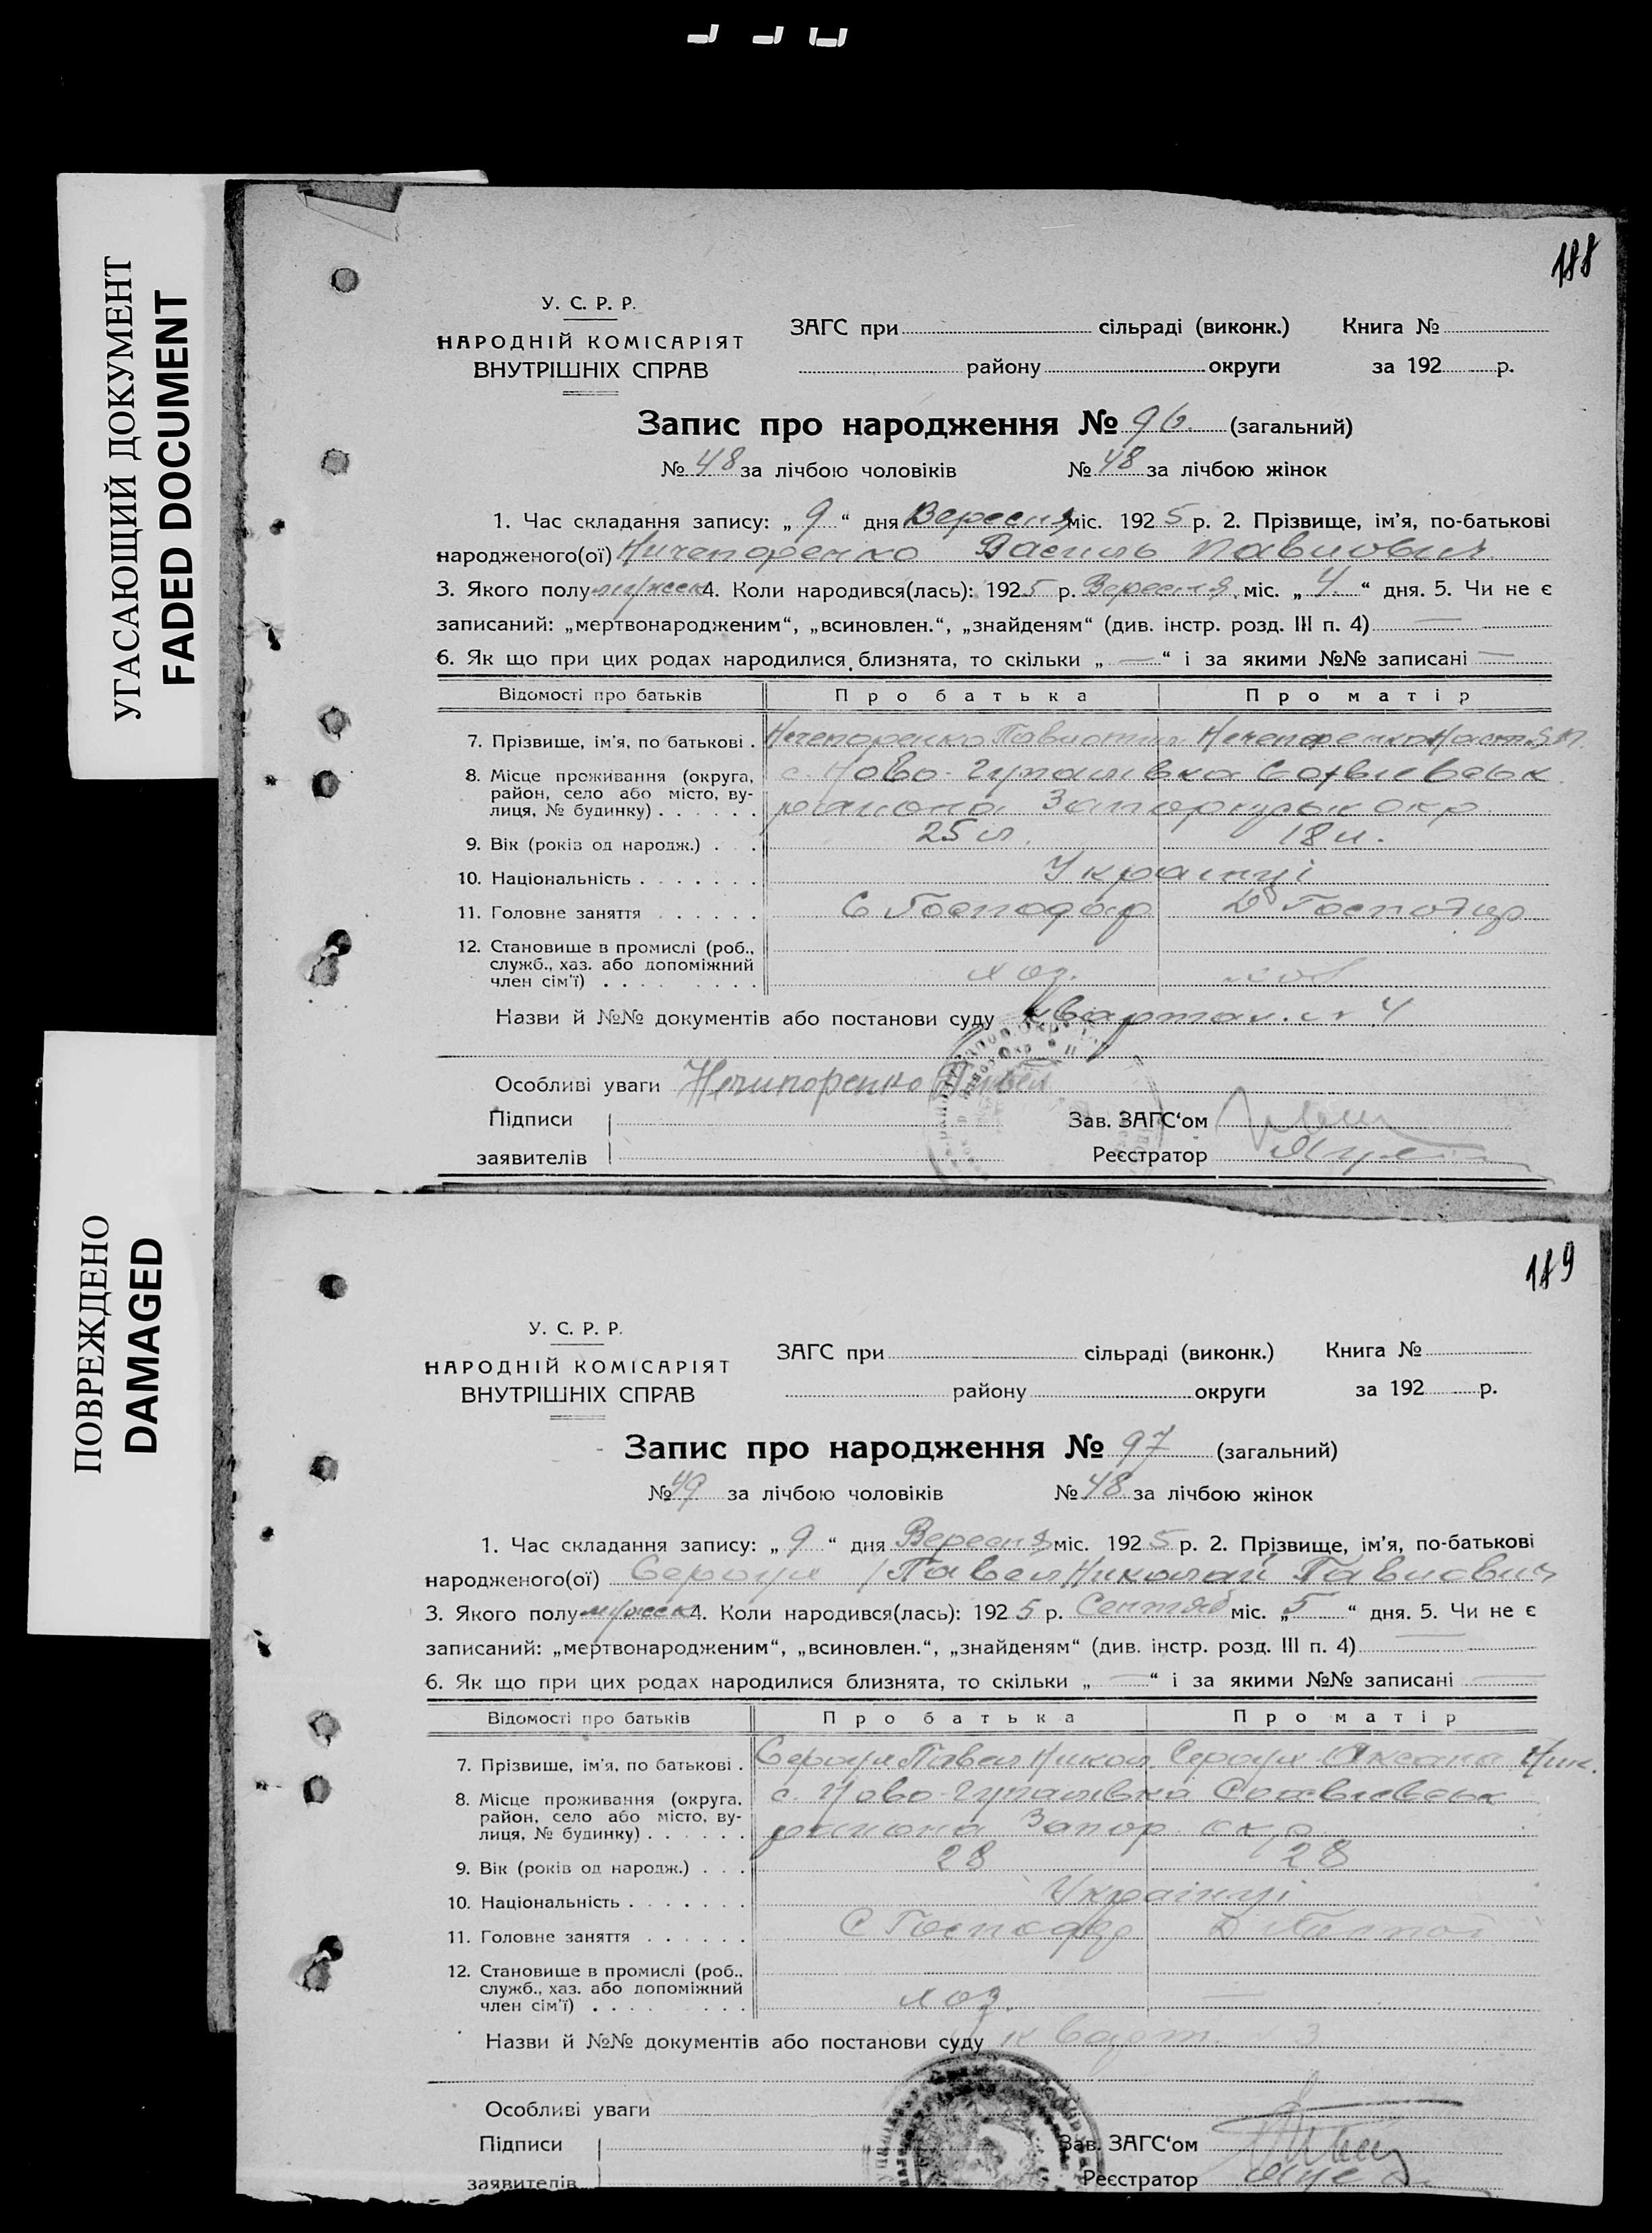 УГАСАЮЩИЙ ДОКУМЕНТ
FADED DOCUMENT
ПОВРЕЖДЕНО
DAMAGED
188
У. С. Р. Р.
НАРОДНІЙ КОМІСАРІЯТ
ВНУТРІШНІХ СПРАВ
ЗАГС при сільраді (виконк.) Книга №
району округи за 192 р.
Запис про народження № 96 (загальний)
№ 48 за лічбою чоловіків № 48 за лічбою жінок
1. Час складання запису: „ 9 “ дня Вересня міс. 1925 р. 2. Прізвище, ім'я, по-батькові
народженого(ої) Ничепоренко Василь Павлович
3. Якого полу мужеск 4. Коли народився(лась): 1925 р. Вересня міс. „ 4. “ дня. 5. Чи не є
записаний: „мертвонародженим“, „всиновлен.“, „знайденям“ (див. інстр. розд. III п. 4) —
6. Як що при цих родах народилися близнята, то скільки „ — “ і за якими №№ записані —
Відомості про батьків Про батька Про матір
7. Прізвище, ім'я, по батькові . Нечепоренко Нечепоренко
8. Місце проживання (округа, район, село або місто, вулиця, № будинку) . . . . . . с. Ново-Гупалівка
района окр.
9. Вік (років од народж.) . . 25 л. 18 л.
10. Національність . . . . . . . Українці
11. Головне заняття . . . . . . С Господар Д Господар
12. Становище в промислі (роб., служб., хаз. або допоміжний член сім'ї) . . . . . . . . хоз.
Назви й №№ документів або постанови суду Квартал. № 4
Особливі уваги Нечипоренко Павел
Підписи Зав. ЗАГС'ом
заявителів Реєстратор
189
У. С. Р. Р.
НАРОДНІЙ КОМІСАРІЯТ
ВНУТРІШНІХ СПРАВ
ЗАГС при сільраді (виконк.) Книга №
району округи за 192 р.
Запис про народження № 97 (загальний)
№ 49 за лічбою чоловіків № 48 за лічбою жінок
1. Час складання запису: „ 9 “ дня Вересня міс. 1925 р. 2. Прізвище, ім'я, по-батькові
народженого(ої) Павел Николай Павлович
3. Якого полу мужеск 4. Коли народився(лась): 1925 р. Сентяб міс. „ 5 “ дня. 5. Чи не є
записаний: „мертвонародженим“, „всиновлен.“, „знайденям“ (див. інстр. розд. III п. 4) —
6. Як що при цих родах народилися близнята, то скільки „ — “ і за якими №№ записані —
Відомості про батьків Про батька Про матір
7. Прізвище, ім'я, по батькові . Павел Никол. Оксана Ник.
8. Місце проживання (округа, район, село або місто, вулиця, № будинку) . . . . . . с. Ново-Гупалівка
района Запор. окр.
9. Вік (років од народж.) . . . 28 28
10. Національність . . . . . . . Українці
11. Головне заняття . . . . . . С Господар
12. Становище в промислі (роб., служб., хаз. або допоміжний член сім'ї) . . . . . . . . хоз. —
Назви й №№ документів або постанови суду Кварт. № 3
Особливі уваги
Підписи Зав. ЗАГС'ом
заявителів Реєстратор